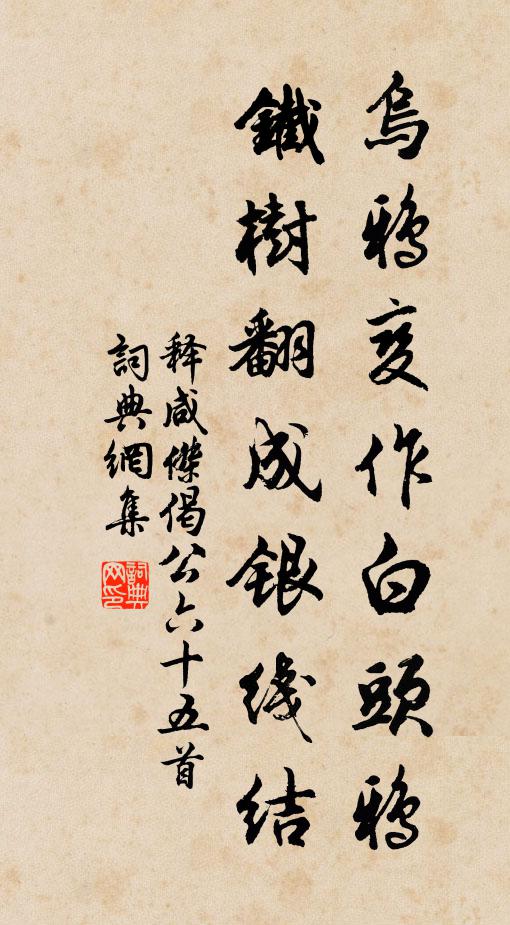 烏鴉变作白頭鴉
鐵樹翻成銀线结
释咸傑偈公六十五首
詞典網集
詞典
网印